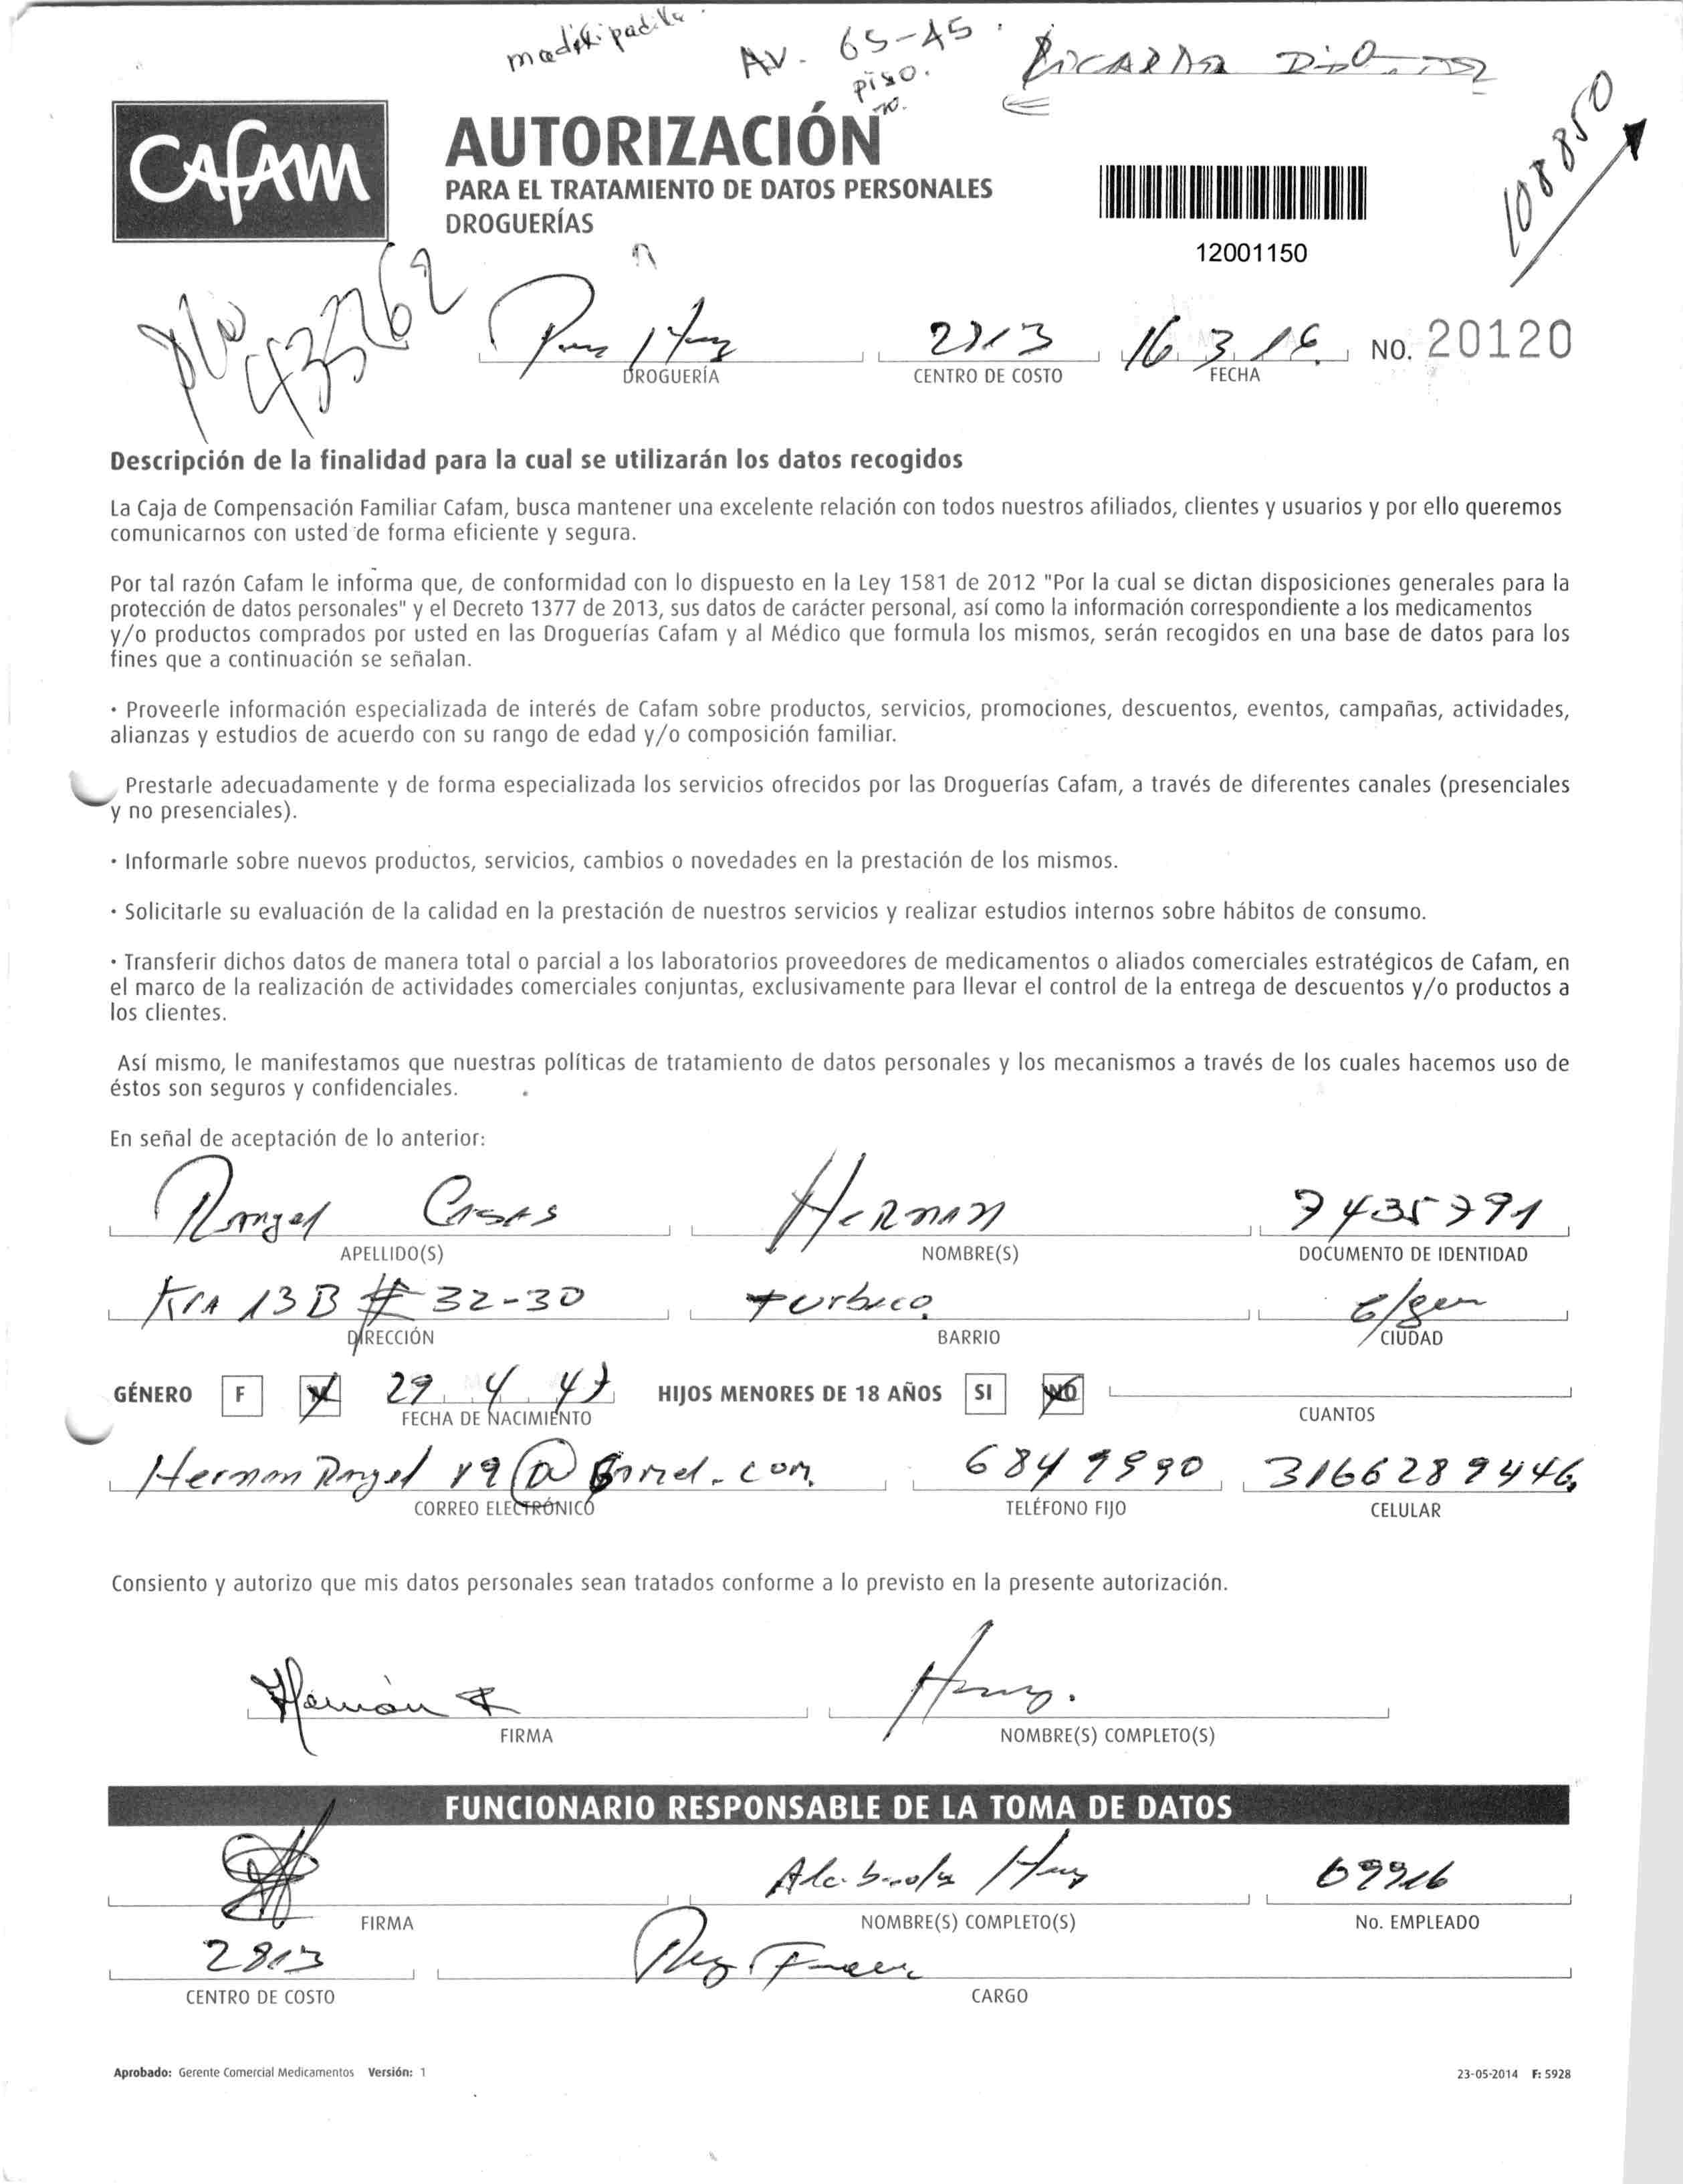 AV. 65-45
piso.
CAFAM
AUTORIZACIÓN
PARA EL TRATAMIENTO DE DATOS PERSONALES
DROGUERÍAS
12001150
108850
DROGUERÍA
CENTRO DE COSTO
16 3 16
FECHA
NO. 20120
Descripción de la finalidad para la cual se utilizarán los datos recogidos
La Caja de Compensación Familiar Cafam, busca mantener una excelente relación con todos nuestros afiliados, clientes y usuarios y por ello queremos
comunicarnos con usted de forma eficiente y segura.
Por tal razón Cafam le informa que, de conformidad con lo dispuesto en la Ley 1581 de 2012 "Por la cual se dictan disposiciones generales para la
protección de datos personales" y el Decreto 1377 de 2013, sus datos de carácter personal, así como la información correspondiente a los medicamentos
y/o productos comprados por usted en las Droguerías Cafam y al Médico que formula los mismos, serán recogidos en una base de datos para los
fines que a continuación se señalan.
· Proveerle información especializada de interés de Cafam sobre productos, servicios, promociones, descuentos, eventos, campañas, actividades,
alianzas y estudios de acuerdo con su rango de edad y/o composición familiar.
Prestarle adecuadamente y de forma especializada los servicios ofrecidos por las Droguerías Cafam, a través de diferentes canales (presenciales
y no presenciales).
· Informarle sobre nuevos productos, servicios, cambios o novedades en la prestación de los mismos.
· Solicitarle su evaluación de la calidad en la prestación de nuestros servicios y realizar estudios internos sobre hábitos de consumo.
· Transferir dichos datos de manera total o parcial a los laboratorios proveedores de medicamentos o aliados comerciales estratégicos de Cafam, en
el marco de la realización de actividades comerciales conjuntas, exclusivamente para llevar el control de la entrega de descuentos y/o productos a
los clientes.
Así mismo, le manifestamos que nuestras políticas de tratamiento de datos personales y los mecanismos a través de los cuales hacemos uso de
éstos son seguros y confidenciales.
En señal de aceptación de lo anterior:
Rangel Casas Hernan 7435791
APELLIDO(S) NOMBRE(S) DOCUMENTO DE IDENTIDAD
Kra 13B # 32-30 turbaco C/gen
DIRECCIÓN BARRIO CIUDAD
GÉNERO F M 29 4 47 HIJOS MENORES DE 18 AÑOS SI NO
FECHA DE NACIMIENTO CUANTOS
3166289446
CORREO ELECTRÓNICO TELÉFONO FIJO CELULAR
Consiento y autorizo que mis datos personales sean tratados conforme a lo previsto en la presente autorización.
Hernán R
FIRMA NOMBRE(S) COMPLETO(S)
FUNCIONARIO RESPONSABLE DE LA TOMA DE DATOS
FIRMA NOMBRE(S) COMPLETO(S) No. EMPLEADO
2813
CENTRO DE COSTO CARGO
Aprobado: Gerente Comercial Medicamentos Versión: 1
23-05-2014 F: 5928